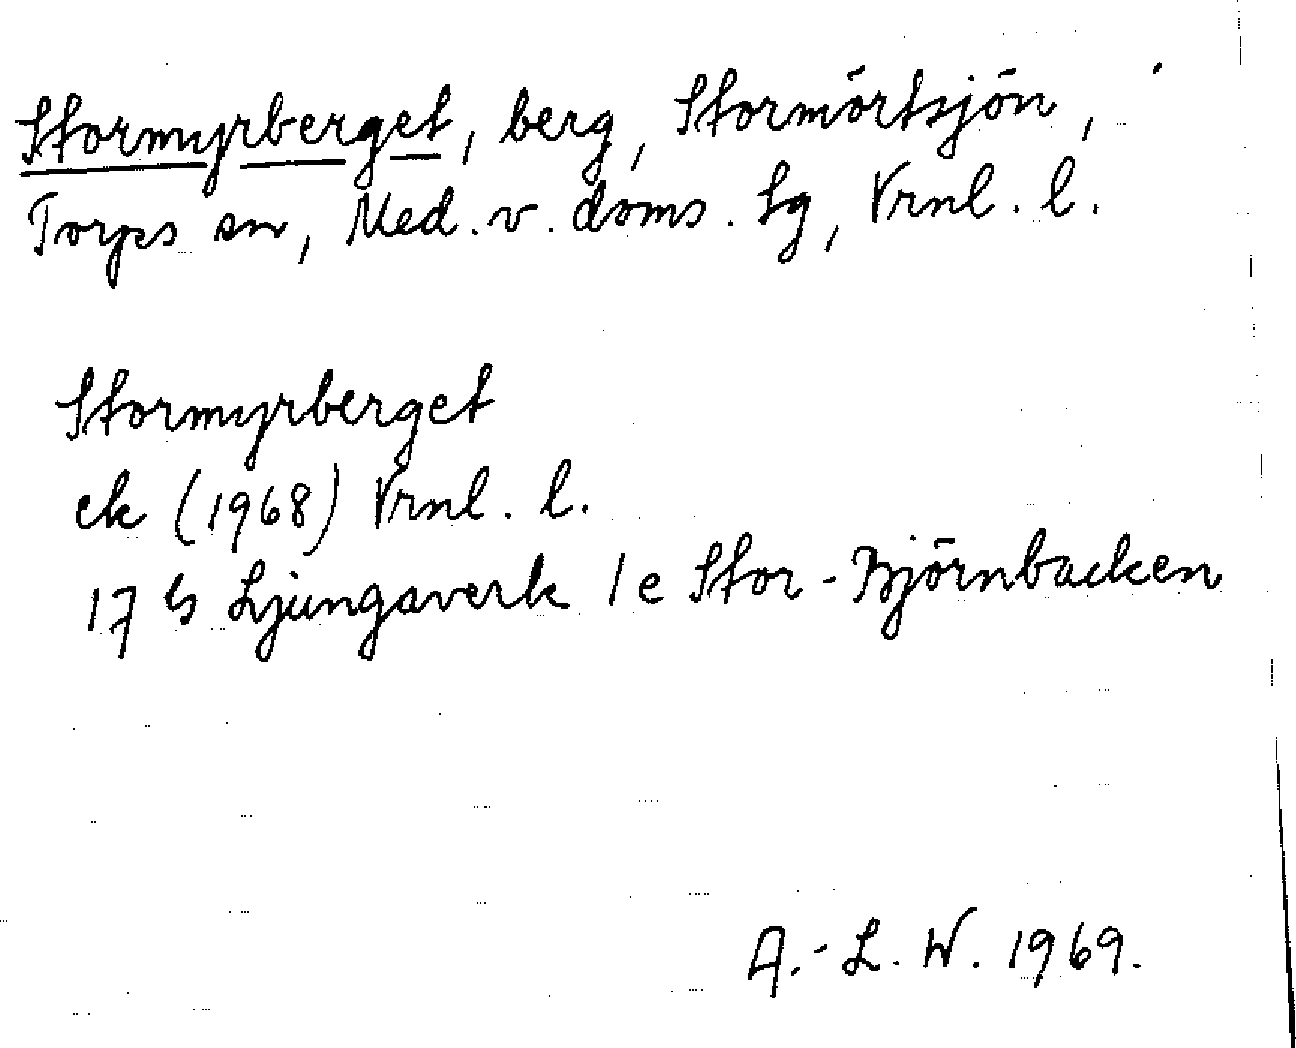 Stormyrberget, berg, Stormörtsjön,
Torps sn, Med. v. doms. Lg, Vrnl. l.
Stormyrberget
ek (1968) Vrnl. l.
17 G Ljungaverk 1e Stor-Björnbacken
A.-L. W. 1969.